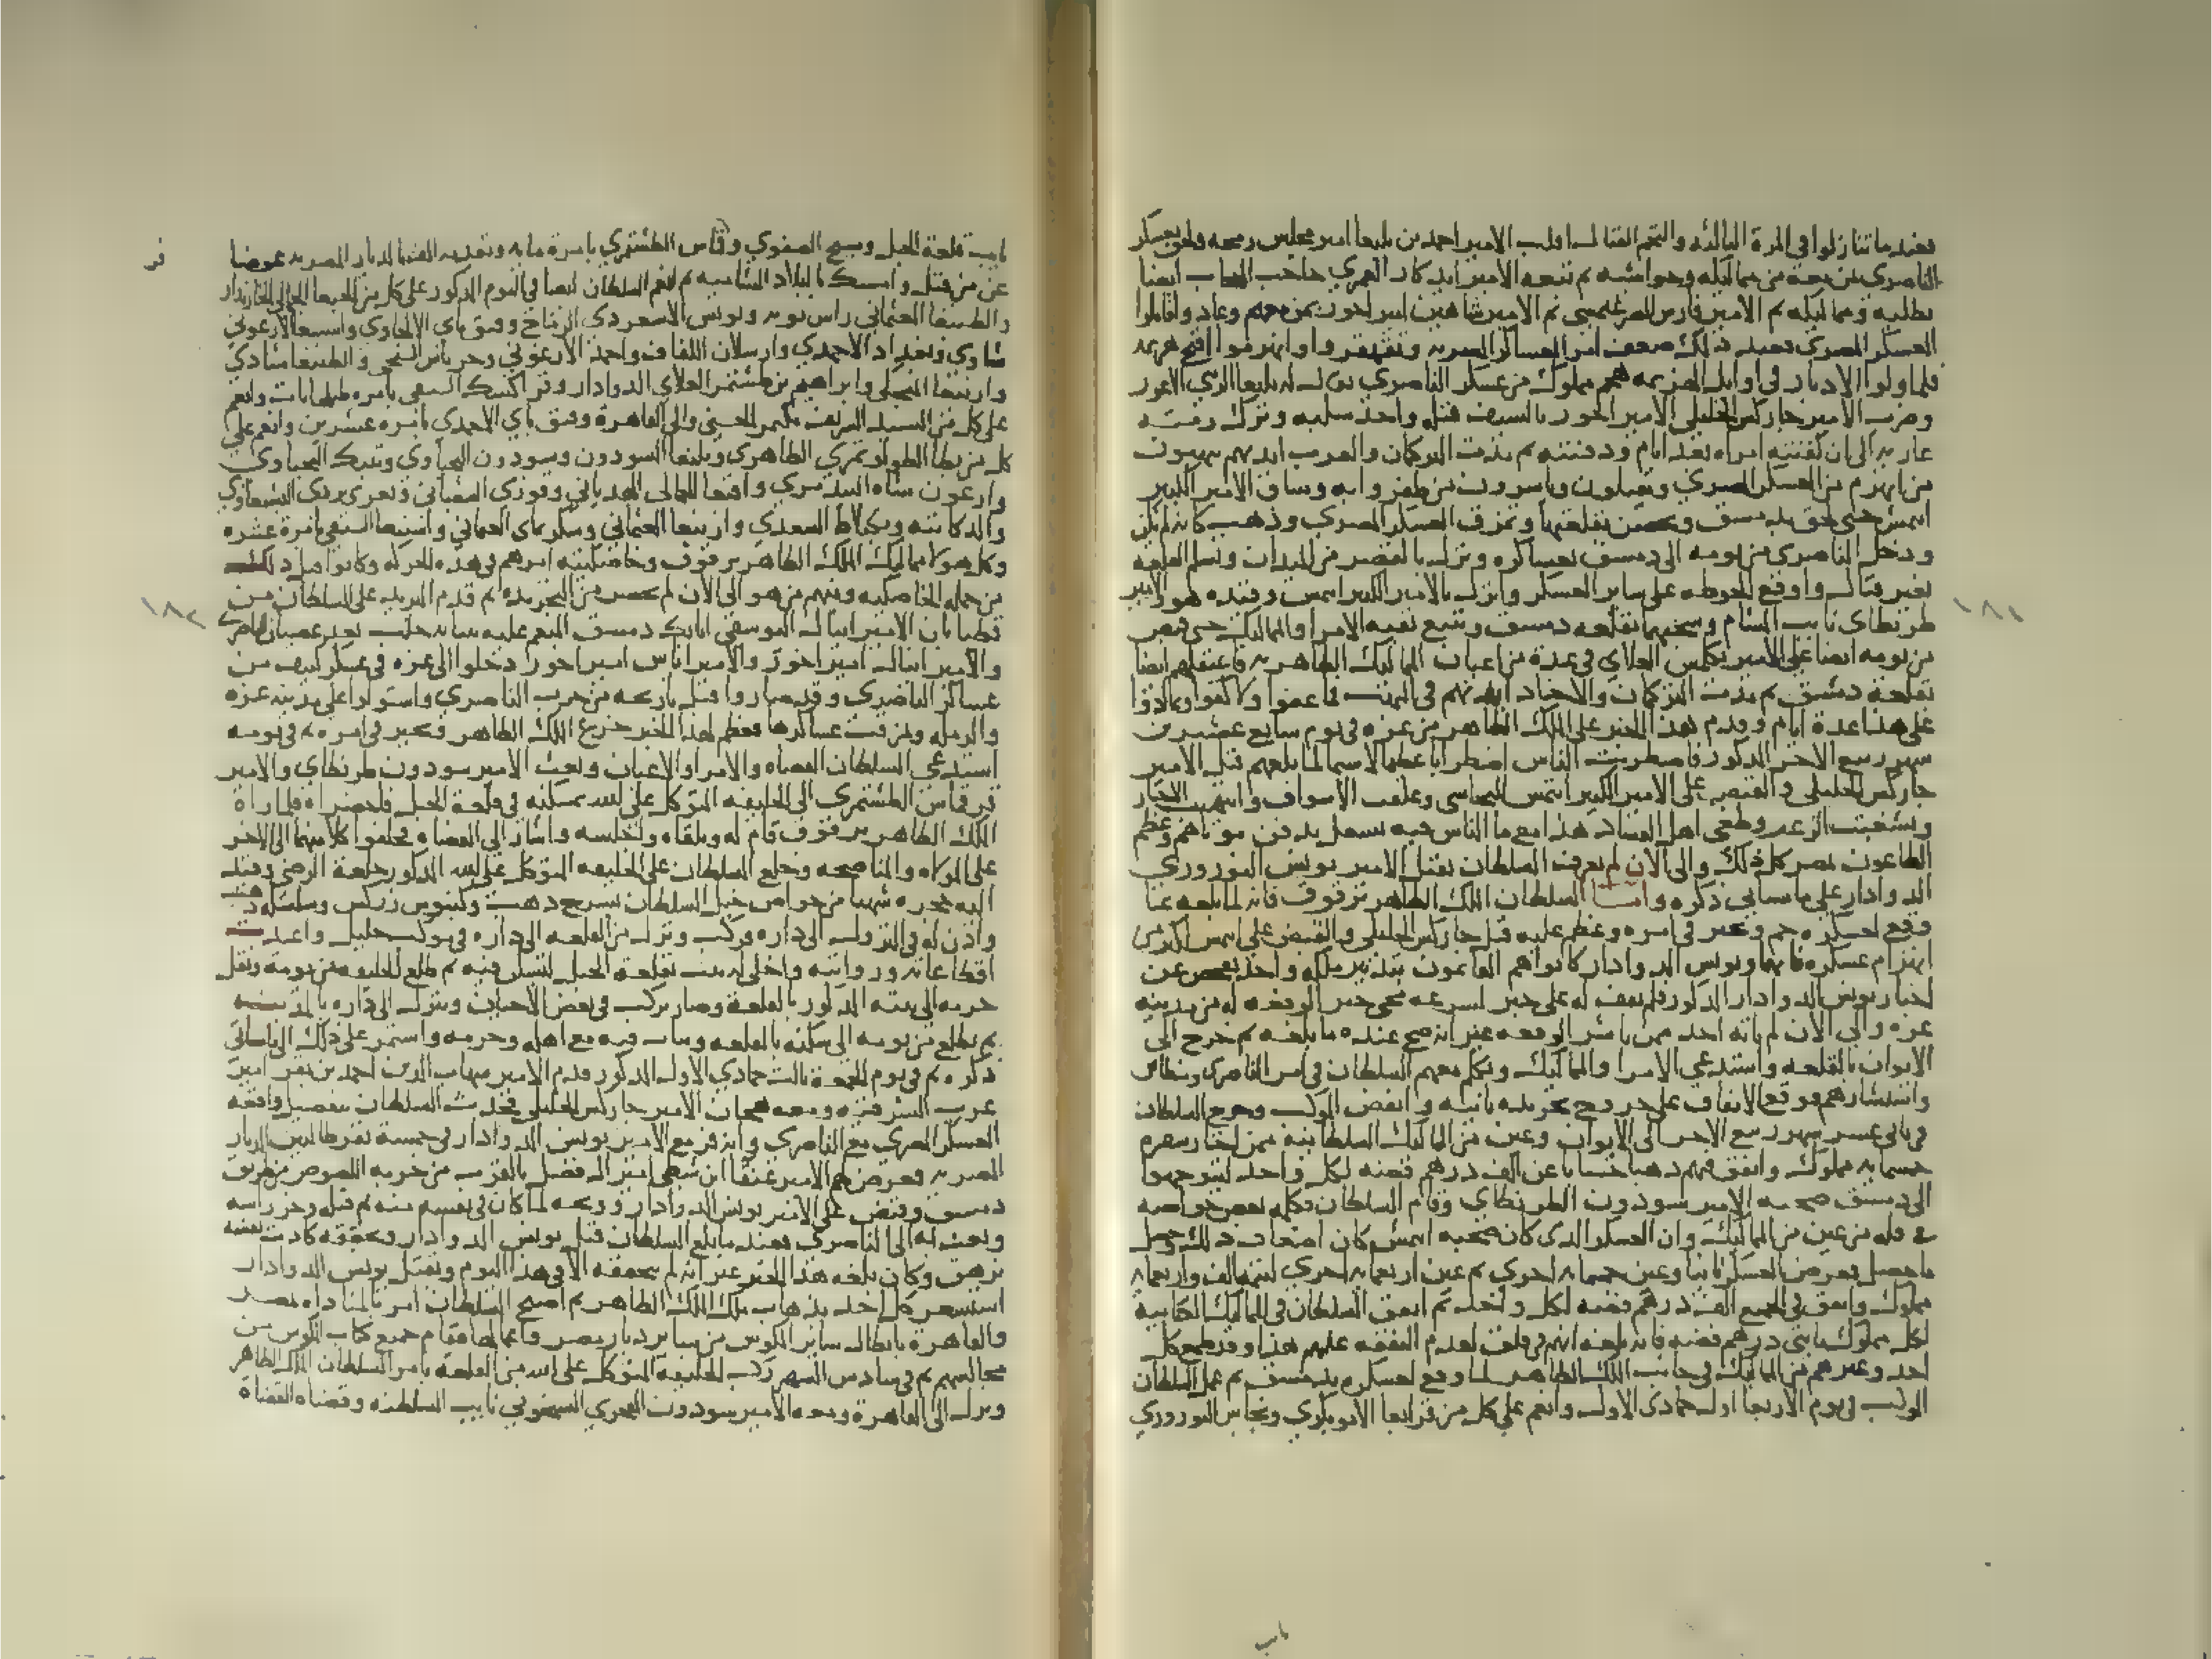 فعندما تنازلوا في المرة الثالثة والتحم القتال انقلب الامير احمد بن يلبغا امير مجلس رمحه ولحق بعسكر
الناصري بمن معه من مماليكه وحواشيه ثم تبعه الامير ايدكار العمري حاجب الحجاب ايضا
بطلبه ومماليكه ثم الامير فارس الصرغتمشي ثم الامير شاهين امير اخور بمن معهم وعادوا قاتلوا
العسكر المصري فعند ذلك ضعف امر العساكر المصرية وتقهقروا وانهزموا اقبح هزيمة
فلما ولوا الادبار في اوايل الهزيمة هجم مملوك من عسكر الناصري يقال له يلبغا الزيني الاعور
وضرب الامير جاركس الخليلي الامير اخور بالسيف قتله واخذ سلبه وترك رمته
عارية الى ان كفنته امراة بعد ايام ودفنته ثم مدت التركمان والعرب ايديهم ينهبون
من انهزم من العسكر المصري ويقتلون وياسرون من ظفروا به وساق الامير الكبير
ايتمش حتى لحق بدمشق وتحصن بقلعتها وتمزق العسكر المصري وذهب كانه لم يكن
ودخل الناصري من يومه الى دمشق بعساكره ونزل بالقصر من الميدان وتسلم القلعة
بغير قتال واوقع الحوطة على ساير العسكر وانزل بالامير الكبير ايتمش وقيده هو والامير
طرنطاي نايب الشام وسجنهما بقلعة دمشق وتتبع بقية الامرا والمماليك حتى قبض
من يومه ايضا على الامير بكلمش العلاي في عدة من اعيان المماليك الظاهرية فاعتقلهم ايضا
بقلعة دمشق ثم مدت التركمان والاجناد ايديهم في النهب فما عفوا ولا كفوا وتمادوا
على هذا عدة ايام وقدم هذا الخبر على الملك الظاهر من غزة في يوم سابع عشرين
شهر ربيع الاخر المذكور فاضطربت الناس اضطرابا عظيما لا سيما لما بلغهم قتل الامير
جاركس الخليلي والقبض على الامير الكبير ايتمش البجاسي وغلقت الاسواق وانتهبت الاخباز
وتشغبت الزعر وطغى اهل الفساد هذا مع ما الناس فيه من شغل بدفن موتاهم وعظم
الطاعون بمصر كل ذلك والى الان لم يعرف السلطان بقتل الامير يونس النوروزي
الدوادار على ما سياتي ذكره واما السلطان الملك الظاهر برقوق فانه لما بلغه ما
وقع لعسكره وجم وتحير في امره وعظم عليه قتل جاركس الخليلي والقبض على ايتمش اكثر من
انهزام عسكره فانهما ويونس الدوادار كانوا هم القايمون بتدبير ملكه واخذ يفحص عن
اخبار يونس الدوادار المذكور فلم يقف له على خبر لسرعة مجي خبر الوقعة له من مدينة
غزة والى الان لم ياته احد ممن باشر الوقعة غير انه صح عنده ما بلغه ثم خرج الى
الايوان بالقلعة واستدعى الامرا والمماليك وتكلم معهم السلطان في امر الناصري ومنطاش
واستشارهم فوقع الاتفاق على خروج تجريدة ثانية وانفض الموكب وخرج السلطان
في ثاني عشر شهر ربيع الاخر الى الايوان وعين من المماليك السلطانية ممن اختار سفره
خمسماية مملوك وانفق فيهم ذهبا حسابا عن الف درهم فضة لكل واحد ليتوجهوا
الى دمشق صحبة الامير سودون الطرنطاي وقام السلطان فكلمه بعض خواصه
في قلة من عين من المماليك وان العسكر الذي كان صحبة ايتمش كان اضعاف ذلك وحصل
ما حصل فعرض العسكر ثانيا وعين خمسماية اخرى ثم عين اربعماية اخرى لتتمة الف واربعماية
مملوك وانفق في الجميع الف درهم فضة لكل واحد ثم انفق السلطان في المماليك الكتابية
لكل مملوك مايتي درهم فضة فانه بلغه انهم في قلق لعدم النفقة عليهم هذا وقد طمع كل
احد وغيرهم من المماليك في جانب الملك الظاهر لما وقع لعسكره بدمشق ثم عمل السلطان
الموكب في يوم الاربعا اول جمادى الاولى وانعم على كل من قرابغا الابوبكري وبجاس النوروزي
نايب
١٨١
نايب قلعة الجبل وشيخ الصفوي وقرقماس الطشتمري بامرة ماية وتقدمة الف بالديار المصرية عوضا
عن من قتل وامسك بالبلاد الشامية ثم انعم السلطان ايضا في اليوم المذكور على كل من الجيبغا الجمالي الخازندار
والطنبغا العثماني راس نوبة ويونس الاسعردي الرماح وقنق باي الالجاوي واسنبغا الارغوني
شاوي وبغداد الاحمدي وارسلان اللفاف واحمد الارغوني وجرباش الشيخي والطنبغا شادي
وارنبغا المنجكي وابراهيم بن طشتمر العلاي الدوادار وقراكسك السيفي بامرة طبلخانات وانعم
على كل من السيد الشريف بكتمر الحسيني والي القاهرة وقنق باي الاحمدي بامرة عشرين وانعم على
كل من بطا الطولوتمري الظاهري ويلبغا السودوني وسودون اليحياوي وتنبك اليحياوي
وارغون شاه البيدمري واقبغا الجمالي الهدباني وقوزي الشعباني وتغري بردي البشبغاوي
وكل هولا مماليك الملك الظاهر برقوق وخاصكيته امرهم في هذه الحركة وكانوا قبل ذلك
من جملة الخاصكية ومنهم من هو الى الان لم يحضر من التجريدة ثم قدم البريد على السلطان من
قطيا بان الامير اينال اليوسفي اتابك دمشق المنعم عليه بنيابة حلب بعد عصيان الناصري
والامير اينال امير اخور والامير اياس امير اخور دخلوا الى غزة في عسكر كثيف من
عساكر الناصري وقد صاروا قبل تاريخه من حزب الناصري واستولوا على مدينة غزة
والرملة وتمزقت عساكرها فعظم لهذا الخبر جزع الملك الظاهر وتحير في امره ثم في يومه
استدعى السلطان القضاة والامرا والاعيان وبعث الامير سودون طرنطاي والامير
قرقماس الطشتمري الى الخليفة المتوكل على الله بمسكنه في قلعة الجبل فاحضراه فلما راه
الملك الظاهر برقوق قام له وتلقاه واجلسه واشار الى القضاة فحلفوا كلا منهما الى الاخر
على الموالاة والمناصحة وخلع السلطان على الخليفة المتوكل على الله المذكور خلعة الرضى وقيد
اليه حجرة شهبا من خواص خيل السلطان بسرج ذهب وكنبوش زركش وسلسلة ذهب
واذن له في النزول الى داره فركب ونزل من القلعة الى داره في موكب جليل واعيدت
اقطاعاته ورواتبه واخلي له بيت بقلعة الجبل ليسكن فيه ثم طلع الخليفة من يومه ونقل
حرمه الى بيته المذكور بالقلعة وصار يركب في بعض الاحيان وينزل الى داره بالمدينة
ثم يطلع من يومه الى سكنه بالقلعة ويبات فيه مع اهله وحرمه واستمر على ذلك الى ما ياتي
ذكره ثم في يوم الجمعة ثالث جمادى الاولى المذكور قدم الامير شهاب الدين احمد بن بقر امير
عرب الشرقية ومعه هجان الامير جاركس الخليلي فحدث السلطان بتفصيل واقعة
العسكر المصري مع الناصري وانه فر مع الامير يونس الدوادار في خمسة نفر طالبين الديار
المصرية فعرض لهم الامير عنقا ابن شطي امير ال فضل بالقرب من خربة اللصوص من طريق
دمشق وقبض على الامير يونس الدوادار ووبخه لما كان في نفسه منه ثم قتله وحز راسه
وبعث به الى الناصري فعند ما بلغ السلطان قتل يونس الدوادار وتحققه كادت نفسه
تزهق وكان بلغه هذا الخبر غير انه لم يتحققه الا في هذا اليوم وبقتل يونس الدوادار
استشعر كل احد بذهاب ملك الملك الظاهر ثم اصبح السلطان امر بالمناداة بمصر
والقاهرة بابطال ساير المكوس من ساير ديار مصر واعمالها فقام جميع كتاب المكوس من
مجالسهم ثم في سادس الشهر ركب الخليفة المتوكل على الله من القلعة بامر السلطان الملك الظاهر
ونزل الى القاهرة ومعه الامير سودون الفخري الشيخوني نايب السلطنة وقضاة القضاة
١٨٢